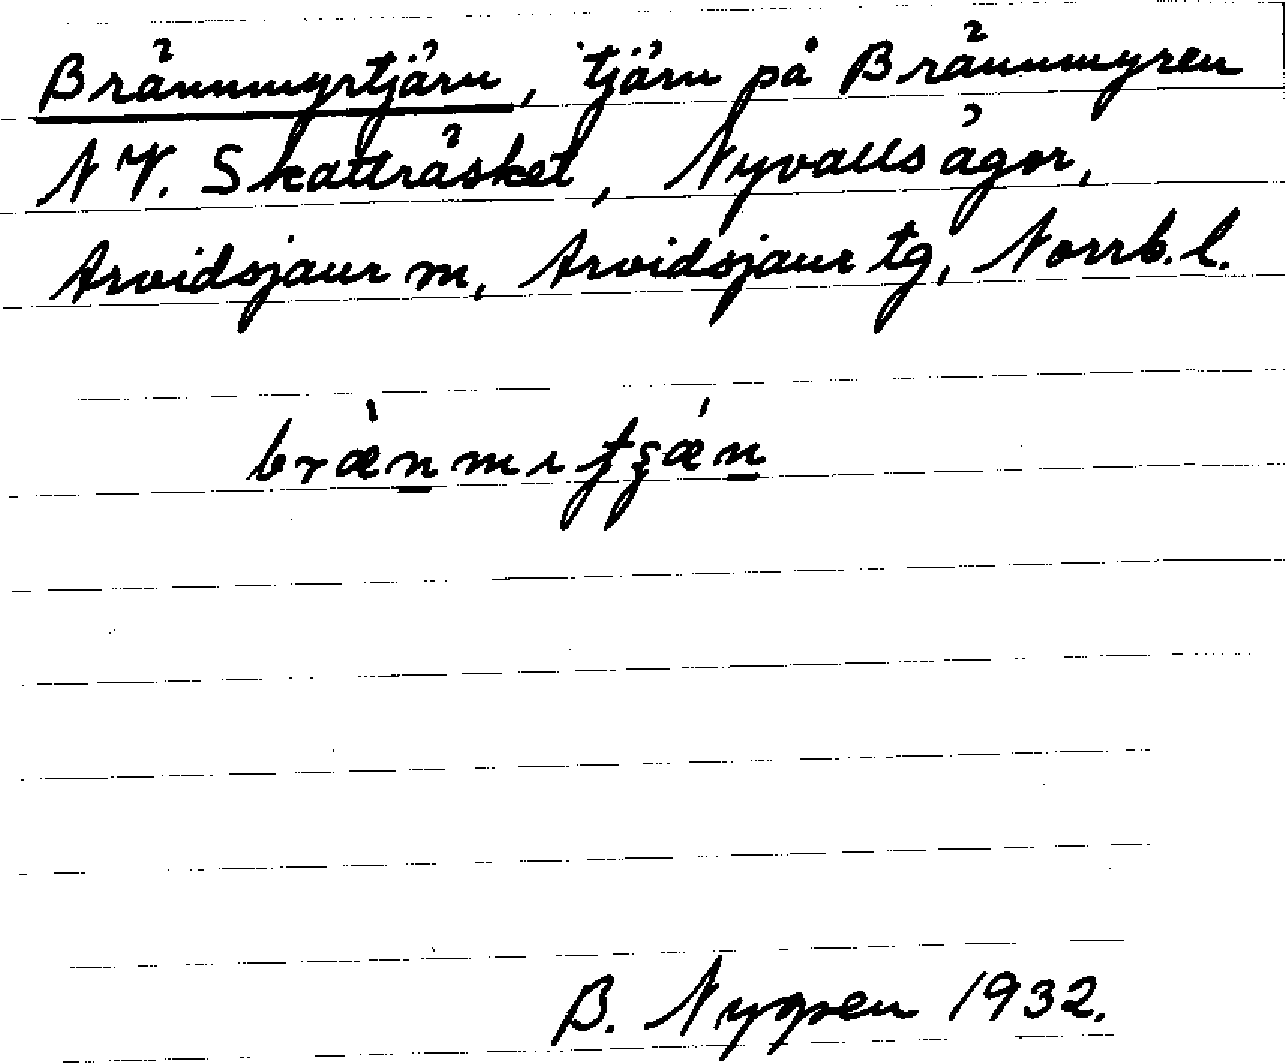 Brännmyrtjärn, tjärn på Brännmyren
NV. Skatträsket, Nyvalls ägor,
Arvidsjaur m, Arvidsjaur tg, Norrb. l.
bræ̀n̲mɩʈʂǽn̲
B. Nygren 1932.